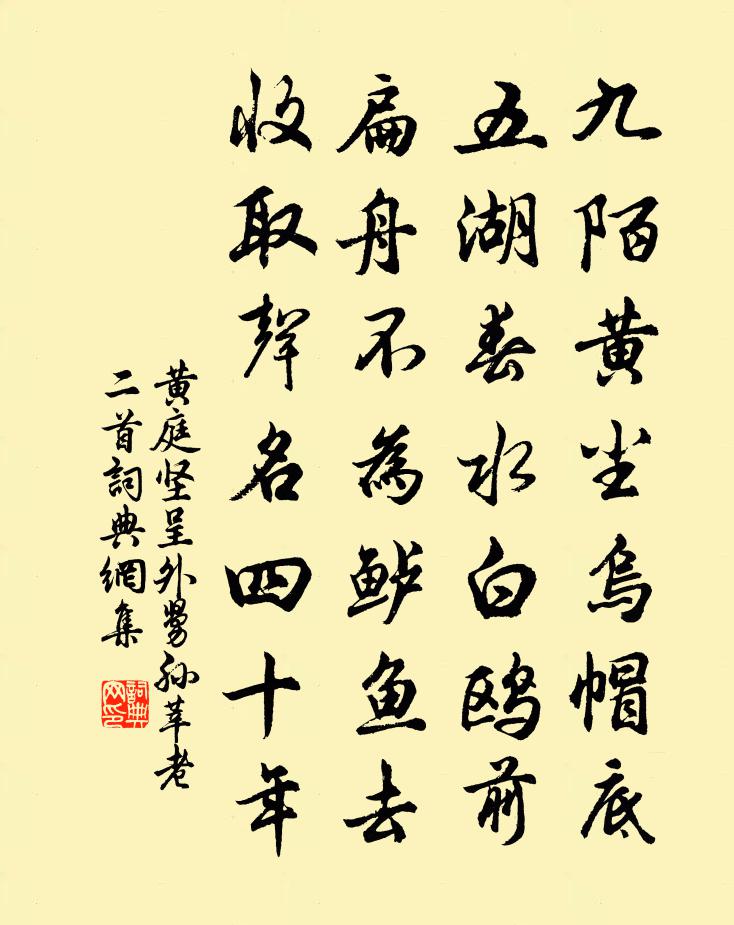 九陌黄尘烏帽底
五湖春水白鸥前
扁舟不為鲈鱼去
收取聲名四十年
黄庭坚呈外舅孙莘老
二首詞典網集
詞典网印